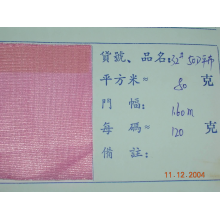 貨號、品名:32ˢ 50D平
平方米≈ 80 克
門 幅: 1.60 m
每 碼≈ 120 克
備 註:
11.12.2004